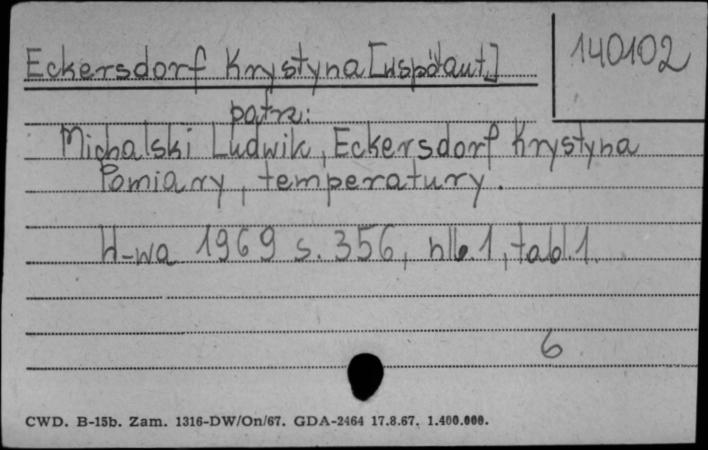 140102
Eckersdorf Krystyna [współaut.]
patrz:
Michalski Ludwik, Eckersdorf Krystyna
Pomiary, temperatury.
W-wa 1969 s. 356, nlb. 1, tabl. 1.
6
CWD. B-15b. Zam. 1316-DW/On/67. GDA-2464 17.8.67. 1.400.000.